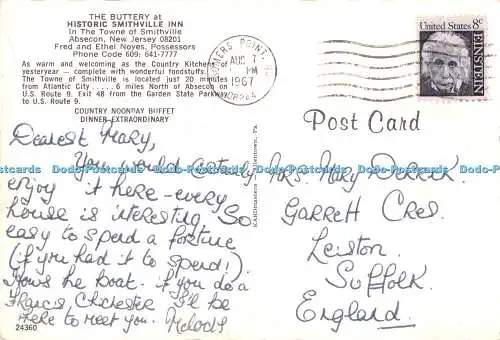 THE BUTTERY at
HISTORIC SMITHVILLE INN
In The Towne of Smithville
Absecon, New Jersey 08201
Fred and Ethel Noyes, Possessors
Phone Code 609; 641-7777
As warm and welcoming as the Country Kitchens of
yesteryear — complete with wonderful foodstuffs.
The Towne of Smithville is located just 20 minutes
from Atlantic City . . . . . 6 miles North of Absecon on
U.S. Route 9. Exit 48 from the Garden State Parkway
to U.S. Route 9.
COUNTRY NOONDAY BUFFET
DINNER EXTRAORDINARY
SOMERS POINT
AUG 7
PM
1967
United States 8c
EINSTEIN
Post Card
Dearest Mary,
You would certainly
enjoy it here - every
house is interesting. So
easy to spend a fortune
(if you had it to spend!).
Hows the boat. If you do a
Francis Chichester I'll be
here to meet you. Melody
24360
Mrs. Mary
Garrett Cres.
Leiston.
Suffolk.
England.
Dodo-Postcards.com Dodo-Postcards.com Dodo-Postcards.com Dodo-Postcards.com